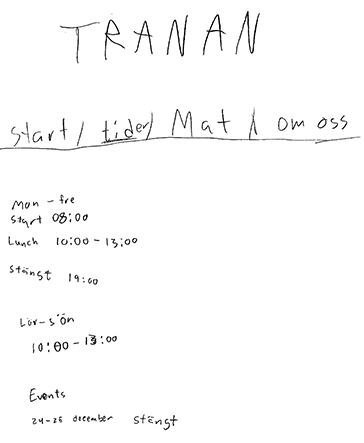 TRANAN
start / tider / Mat / om oss
Mon - fre
Start 08:00
Lunch 10:00 - 13:00
Stängt 19:00
Lör-sön
10:00 - 13:00
Events
24-25 december stängt